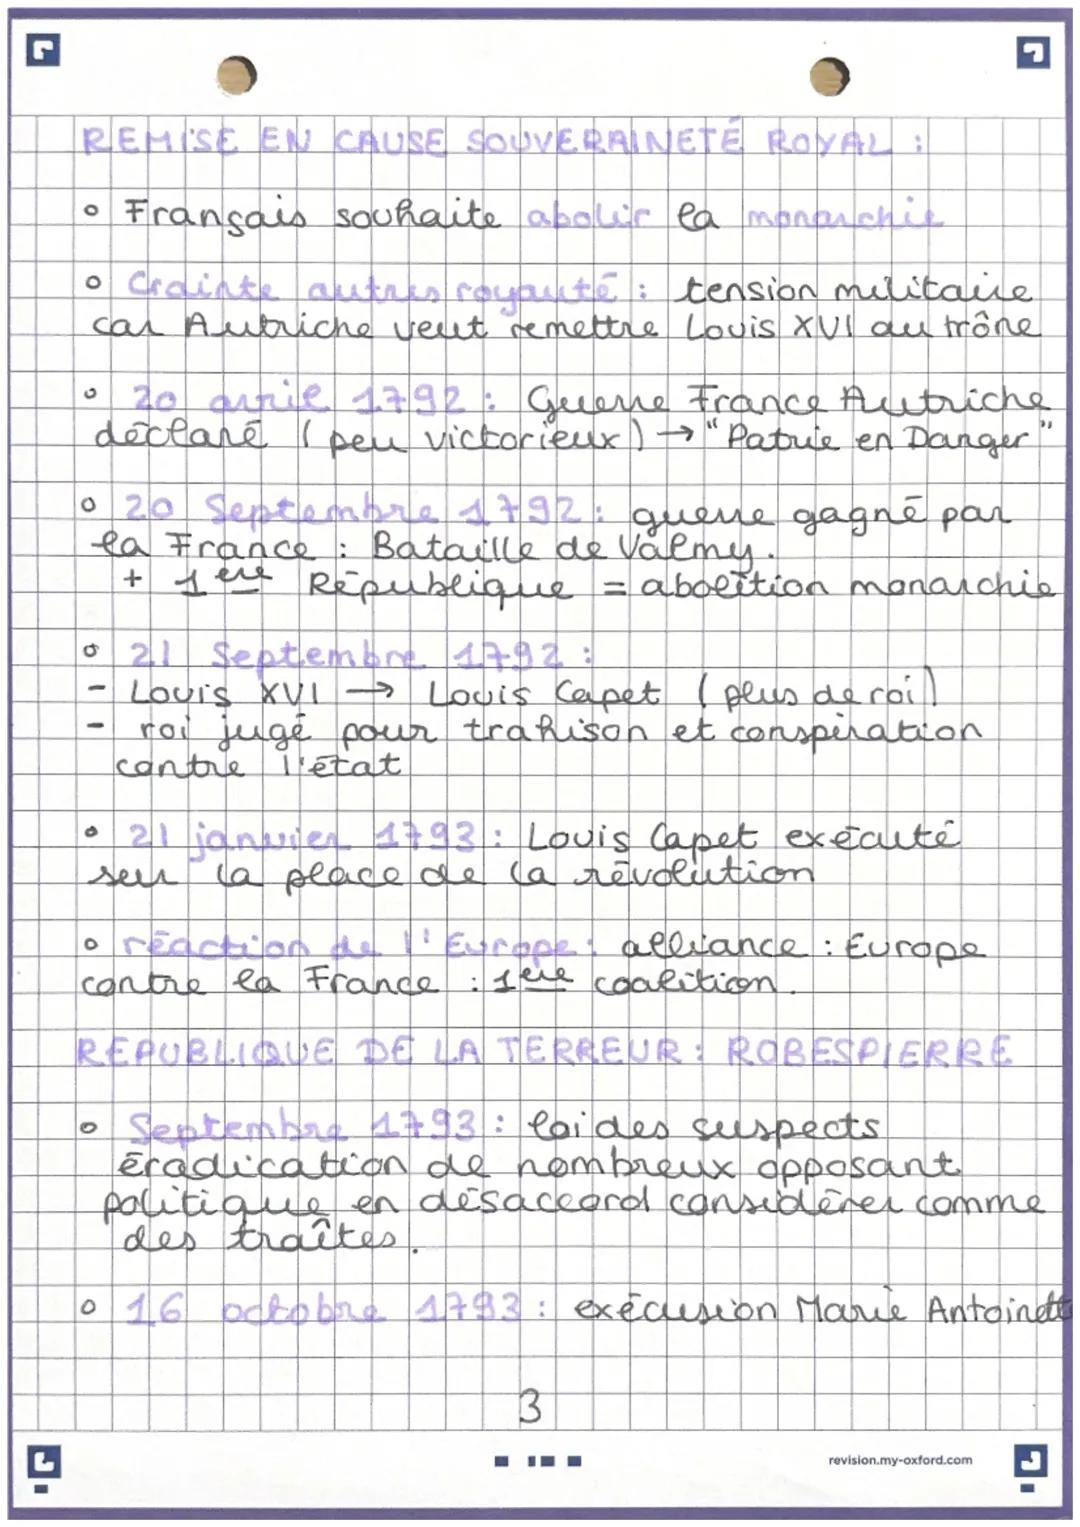 REMISE EN CAUSE SOUVERAINETÉ ROYAL :
° Français souhaite abolir la monarchie
° Crainte autres royauté : tension militaire
car Autriche veut remettre Louis XVI au trône
° 20 avril 1792 : Guerre France Autriche
déclaré ( peu victorieux ) → "Patrie en Danger"
° 20 Septembre 1792 : guerre gagné par
la France : Bataille de Valmy.
+ 1ère République = abolition monarchie
° 21 Septembre 1792 :
- Louis XVI → Louis Capet ( plus de roi )
- roi jugé pour trahison et conspiration
contre l'état
° 21 janvier 1793 : Louis Capet exécuté
sur la place de la révolution
° réaction de l'Europe : alliance : Europe
contre la France : 1ère coalition.
REPUBLIQUE DE LA TERREUR : ROBESPIERRE
° Septembre 1793 : loi des suspects
éradication de nombreux opposant
politique en désaccord considérer comme
des traîtes.
° 16 octobre 1793 : exécusion Marie Antoinett
3
revision.my-oxford.com